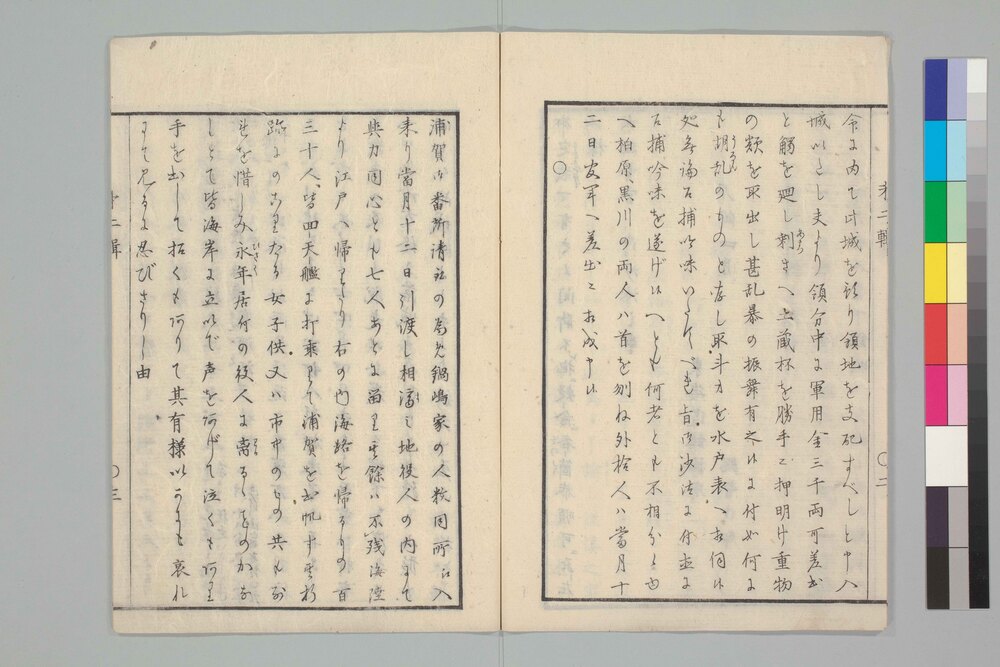 令に内て此城を詰り領地を支配すべしと申入
城いたし夫より領分中に軍用金三千両可差出
と觸を廻し刺さへ土蔵杯を勝手に押明け重物
の類を取出し甚乱暴の振舞有之候に付如何に
も胡乱のものと存し取斗方を水戸表へお伺候
処無論召捕吟味いたすべき旨御沙汰に付直に
召捕吟味を遂げ候へとも何者とも不相分と由
へ柏原黒川の両人ハ首を刎ね外拾人ハ當月十
二日官軍へ差出に相成申候
〇
第二輯
〇二
浦賀御番所請取の為め鍋嶋家の人数同所に入
来り當月十二日引渡し相濟み地役人の内にて
與力同心とも七人あとに留り其余ハ不残海陸
より江戸へ帰りたり右の内海路を帰るもの百
三十人皆回天艦に打乗りて浦賀を出帆す其折
跡にのこりたる女子供又ハ市中のもの共もな
ごりを惜しみ永年居付の役人に離るゝものかな
しとて皆海岸に立いで声をあげて泣くもあり
手を出して招くもありて其有様いかにも哀れ
にて見るに忍びざりし由
第二輯
〇三